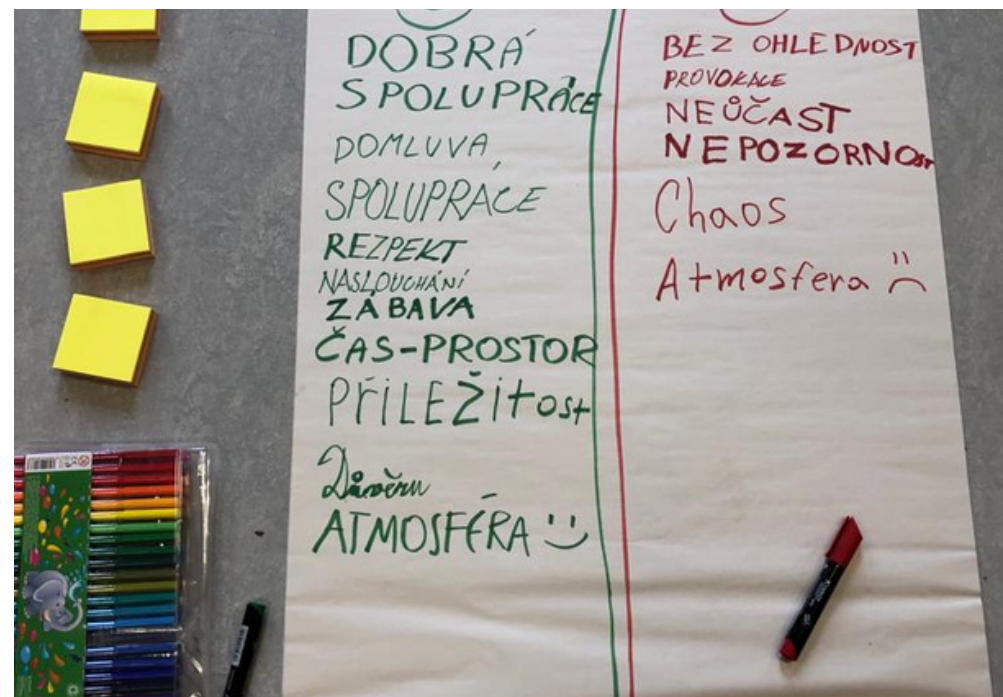 DOBRÁ
SPOLUPRÁCE
DOMLUVA,
SPOLUPRÁCE
REZPEKT
NASLOUCHÁNÍ
ZÁBAVA
ČAS-PROSTOR
PŘÍLEŽITOST
Důvěru
ATMOSFÉRA :)
BEZ OHLEDNOST
PROVOKACE
NEÚČAST
NEPOZORNOST
Chaos
Atmosfera :(